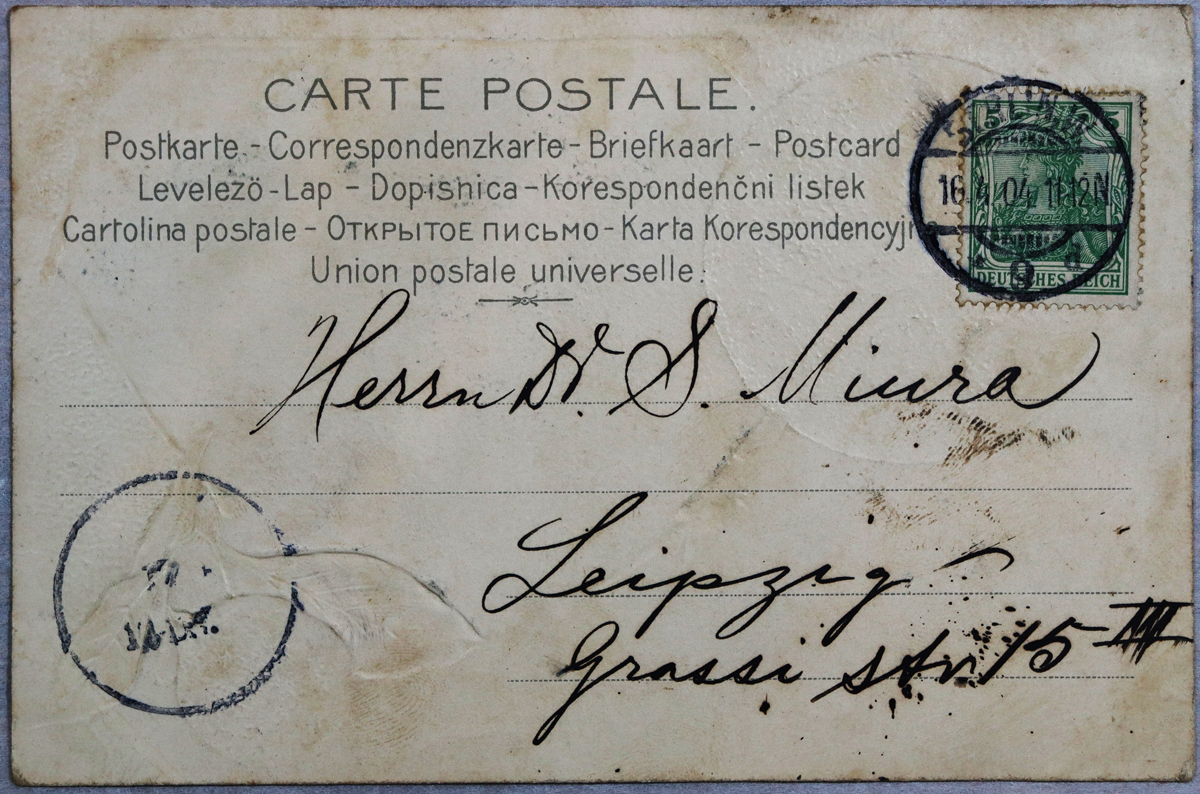 CARTE POSTALE.
Postkarte - Correspondenzkarte - Briefkaart - Postcard
Levelezö-Lap - Dopisnica - Korespondenčni listek
Cartolina postale - Открытое письмо - Karta Korespondencyjna
Union postale universelle.
5 5
BERLIN.W
16.4.04.11-12N
9
DEUTSCHES REICH
Herrn Dr. S. Miura
Leipzig
Grassi str 15 III